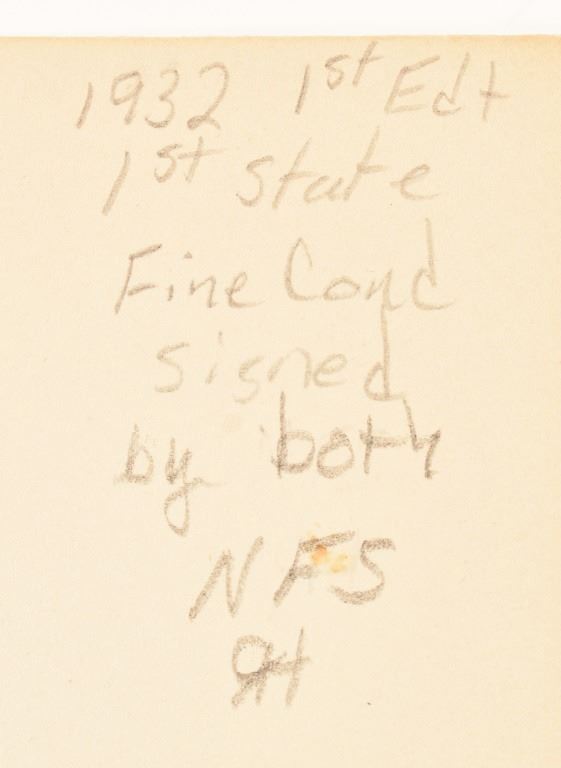 1932 1st Edt
1st state
Fine Cond
signed
by both
NFS